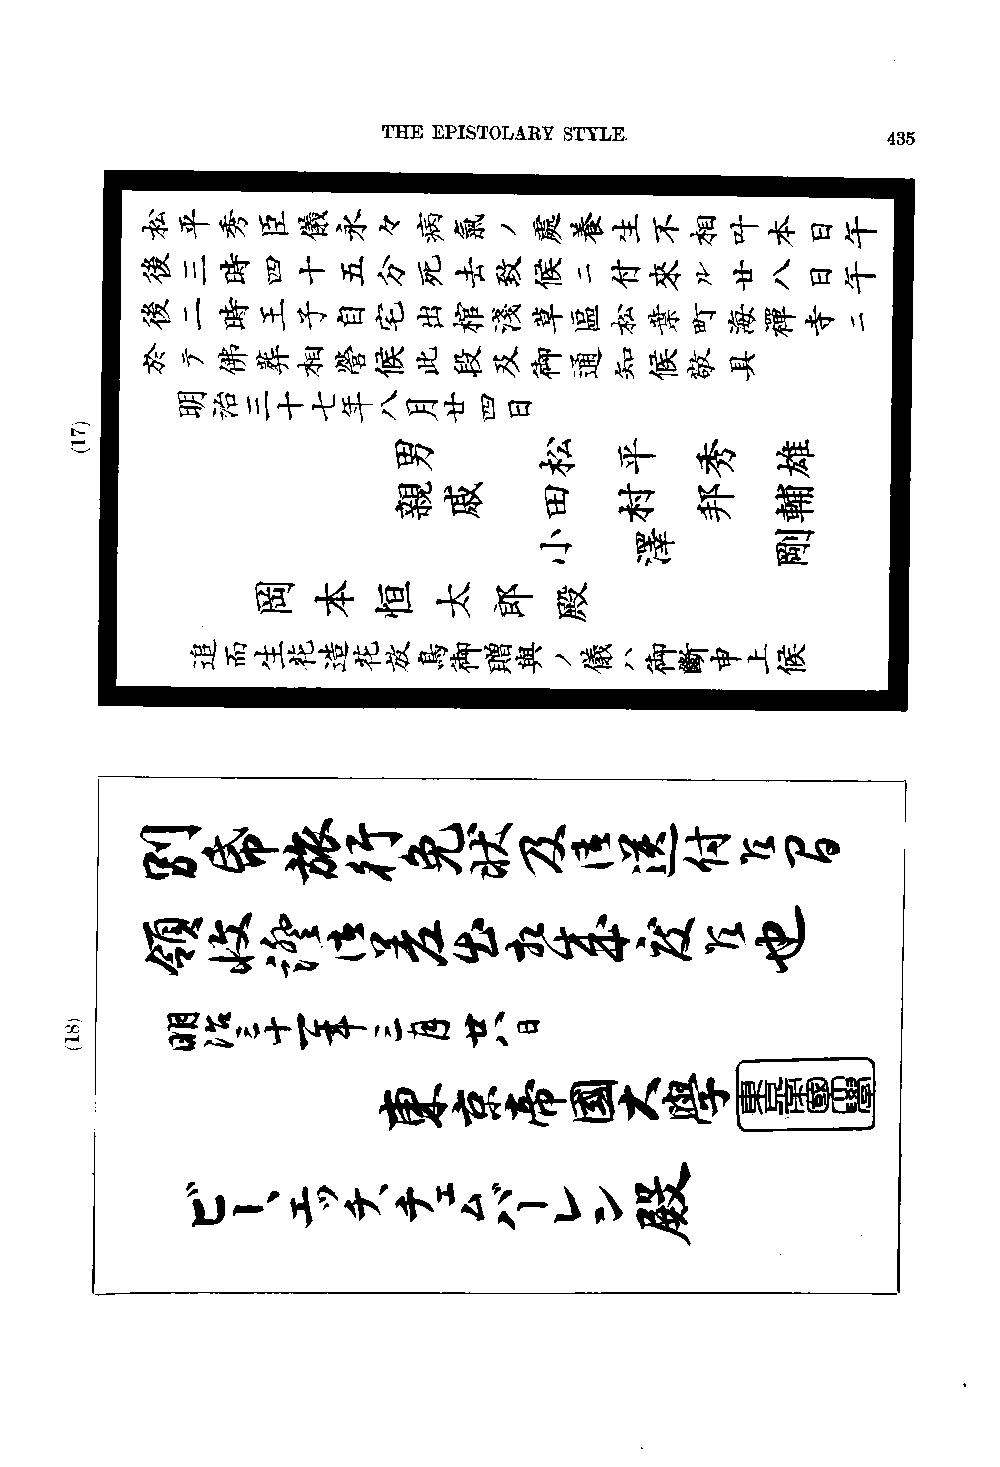 THE EPISTOLARY STYLE.
435
(17)
松平秀臣儀永々病氣ノ處養生不相叶本日午
後三時四十五分死去致候ニ付來ル廿八日午
後二時王子自宅出棺淺草區松葉町海禪寺ニ
於テ佛葬相營候此段及御通知候敬具
明治三十七年八月廿四日
男 松平秀雄
親戚 小田村邦輔
澤剛
岡本恒太郎殿
追而生花造花放鳥御贈與ノ儀ハ御斷申上候
(18)
別帋旅行免状及御送付候間
領收證御差出相成度候也
明治三十一年三月廿八日
東京帝國大學
ビー、エッチ、チェムバーレン殿